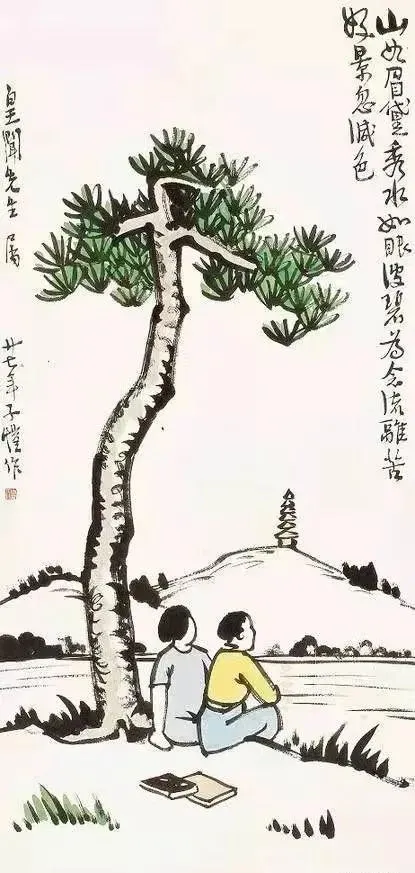 山如眉黛秀水如眼波碧為念流離苦
好景忽減色
聞先生 屬
廿七年子愷作